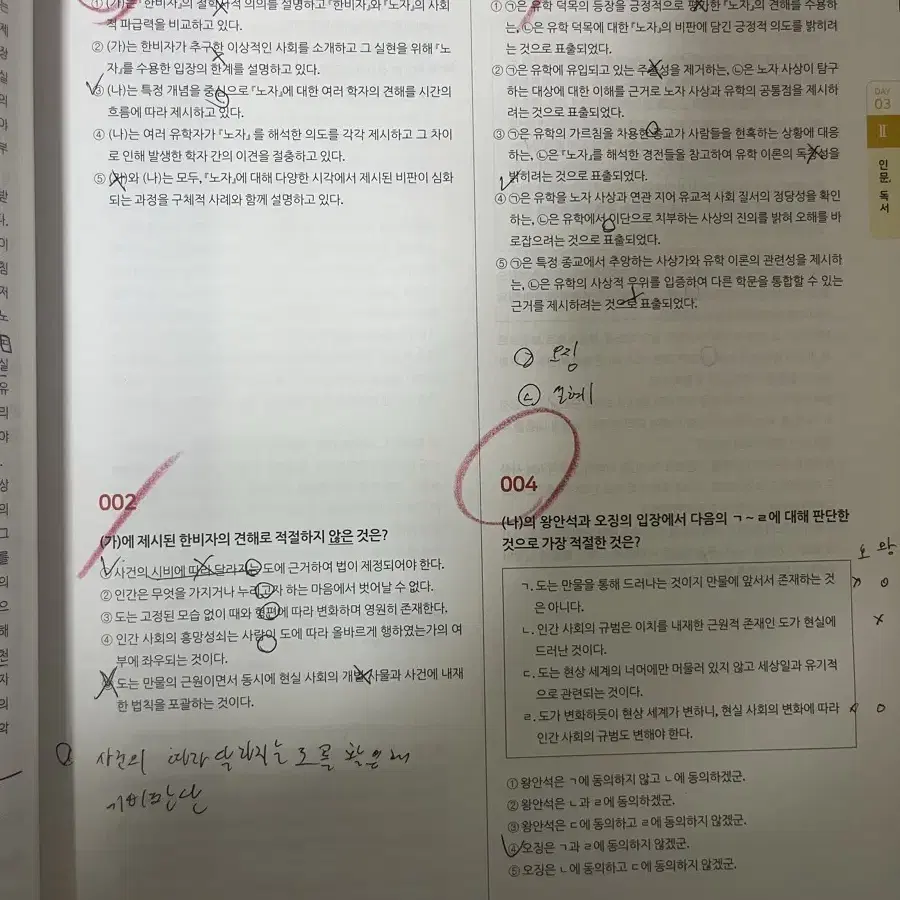 ① (가)는 『한비자』의 철학사적 의의를 설명하고 『한비자』와 『노자』의 사회
적 파급력을 비교하고 있다.
② (가)는 한비자가 추구한 이상적인 사회를 소개하고 그 실현을 위해 『노
자』를 수용한 입장의 한계를 설명하고 있다.
③ (나)는 특정 개념을 중심으로 『노자』에 대한 여러 학자의 견해를 시간의
흐름에 따라 제시하고 있다.
④ (나)는 여러 유학자가 『노자』를 해석한 의도를 각각 제시하고 그 차이
로 인해 발생한 학자 간의 이견을 절충하고 있다.
⑤ (가)와 (나)는 모두, 『노자』에 대해 다양한 시각에서 제시된 비판이 심화
되는 과정을 구체적 사례와 함께 설명하고 있다.
002
(가)에 제시된 한비자의 견해로 적절하지 않은 것은?
① 사건의 시비에 따라 달라지는 도에 근거하여 법이 제정되어야 한다.
② 인간은 무엇을 가지거나 누리고자 하는 마음에서 벗어날 수 없다.
③ 도는 고정된 모습 없이 때와 형편에 따라 변화하며 영원히 존재한다.
④ 인간 사회의 흥망성쇠는 사람이 도에 따라 올바르게 행하였는가의 여
부에 좌우되는 것이다.
⑤ 도는 만물의 근원이면서 동시에 현실 사회의 개별 사물과 사건에 내재
한 법칙을 포괄하는 것이다.
사건의 따라 달라지는 도를
① ㉠은 유학 덕목의 등장을 긍정적으로 평가한 『노자』의 견해를 수용하
는, ㉡은 유학 덕목에 대한 『노자』의 비판에 담긴 긍정적 의도를 밝히려
는 것으로 표출되었다.
② ㉠은 유학에 유입되고 있는 주술성을 제거하는, ㉡은 노자 사상이 탐구
하는 대상에 대한 이해를 근거로 노자 사상과 유학의 공통점을 제시하
려는 것으로 표출되었다.
③ ㉠은 유학의 가르침을 차용한 종교가 사람들을 현혹하는 상황에 대응
하는, ㉡은 『노자』를 해석한 경전들을 참고하여 유학 이론의 독창성을
밝히려는 것으로 표출되었다.
④ ㉠은 유학을 노자 사상과 연관 지어 유교적 사회 질서의 정당성을 확인
하는, ㉡은 유학에서 이단으로 치부하는 사상의 진의를 밝혀 오해를 바
로잡으려는 것으로 표출되었다.
⑤ ㉠은 특정 종교에서 추앙하는 사상가와 유학 이론의 관련성을 제시하
는, ㉡은 유학의 사상적 우위를 입증하여 다른 학문을 통합할 수 있는
근거를 제시하려는 것으로 표출되었다.
㉠ 오징
㉡ 설혜
004
(나)의 왕안석과 오징의 입장에서 다음의 ㄱ~ㄹ에 대해 판단한
것으로 가장 적절한 것은?
오 왕
ㄱ. 도는 만물을 통해 드러나는 것이지 만물에 앞서서 존재하는 것 x o
은 아니다.
ㄴ. 인간 사회의 규범은 이치를 내재한 근원적 존재인 도가 현실에 x
드러난 것이다.
ㄷ. 도는 현상 세계의 너머에만 머물러 있지 않고 세상일과 유기적
으로 관련되는 것이다.
ㄹ. 도가 변화하듯이 현상 세계가 변하니, 현실 사회의 변화에 따라 x o
인간 사회의 규범도 변해야 한다.
① 왕안석은 ㄱ에 동의하지 않고 ㄴ에 동의하겠군.
② 왕안석은 ㄴ과 ㄹ에 동의하겠군.
③ 왕안석은 ㄷ에 동의하고 ㄹ에 동의하지 않겠군.
④ 오징은 ㄱ과 ㄹ에 동의하지 않겠군.
⑤ 오징은 ㄴ에 동의하고 ㄷ에 동의하지 않겠군.
DAY
03
II
인문, 독서